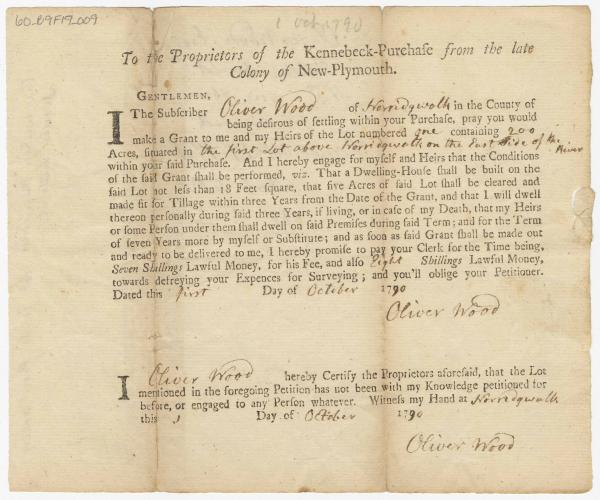 60_B9F19_009
1 Oct 1790
To the Proprietors of the Kennebeck-Purchaſe from the late
Colony of New-Plymouth.
GENTLEMEN,
I The Subſcriber Oliver Wood of Norridgwalk in the County of
being deſirous of ſettling within your Purchaſe, pray you would
make a Grant to me and my Heirs of the Lot numbered one containing 200
Acres, ſituated in the first Lot above Norridgwalk on the East Side of the River
within your ſaid Purchaſe. And I hereby engage for myſelf and Heirs that the Conditions
of the ſaid Grant ſhall be performed, viz. That a Dwelling-Houſe ſhall be built on the
ſaid Lot not leſs than 18 Feet ſquare, that five Acres of ſaid Lot ſhall be cleared and
made fit for Tillage within three Years from the Date of the Grant, and that I will dwell
thereon perſonally during ſaid three Years, if living, or in caſe of my Death, that my Heirs
or ſome Perſon under them ſhall dwell on ſaid Premiſes during ſaid Term; and for the Term
of ſeven Years more by myſelf or Subſtitute; and as ſoon as ſaid Grant ſhall be made out
and ready to be delivered to me, I hereby promiſe to pay your Clerk for the Time being,
Seven Shillings Lawful Money, for his Fee, and alſo Eight Shillings Lawful Money,
towards defreying your Expences for Surveying; and you'll oblige your Petitioner.
Dated this first Day of October 1790
Oliver Wood
I Oliver Wood hereby Certify the Proprietors aforeſaid, that the Lot
mentioned in the foregoing Petition has not been with my Knowledge petitioned for
before, or engaged to any Perſon whatever. Witneſs my Hand at Norridgwalk
this 1 Day of October 1790
Oliver Wood